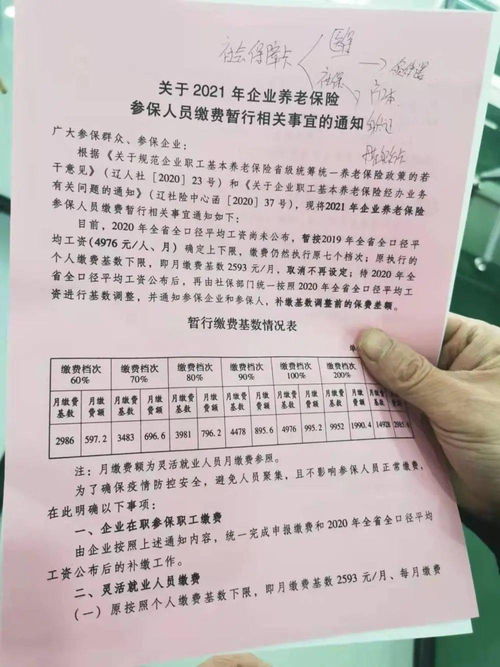 社会保障卡
医保
社保
户口本
身份证
关于 2021 年企业养老保险
参保人员缴费暂行相关事宜的通知
广大参保群众、参保企业：
根据《关于规范企业职工基本养老保险省级统筹统一养老保险政策的若
干意见》（辽人社【2020】23 号）和《关于企业职工基本养老保险经办业务
有关问题的通知》（辽社险中心函【2020】37 号），现将2021 年企业养老保险
参保人员缴费暂行相关事宜通知如下：
目前，2020 年全省全口径平均工资尚未公布，暂按2019 年全省全口径平
均工资(4976 元/人、月）确定上下限，缴费仍然执行原七个档次；原执行的
个人缴费基数下限，即月缴费基数 2593 元/月，取消不再设定；待 2020 年全
省全口径平均工资公布后，再由社保部门统一按照 2020 年全省全口径平均工
资进行基数调整，并通知参保企业和参保人，补缴基数调整前的保费差额。
暂行缴费基数情况表
单
缴费档次 60% 缴费档次 70% 缴费档次 80% 缴费档次 90% 缴费档次 100% 缴费档次 200%
月缴费基数 月缴费额 月缴费基数 月缴费额 月缴费基数 月缴费额 月缴费基数 月缴费额 月缴费基数 月缴费额 月缴费基数 月缴费额
2986 597.2 3483 696.6 3981 796.2 4478 895.6 4976 995.2 9952 1990.4 14928 2985.6
注：月缴费额为灵活就业人员月缴费参照。
为了确保疫情防控安全，避免人员聚集，且不影响参保人员正常缴费，
在此明确以下事项：
一、企业在职参保职工缴费
由企业按照上述通知内容，统一完成申报缴费和 2020 年全省全口径平均
工资公布后的补缴工作。
二、灵活就业人员缴费
（一）原按照个人缴费基数下限，即月缴费基数 2593 元/月、每月缴费